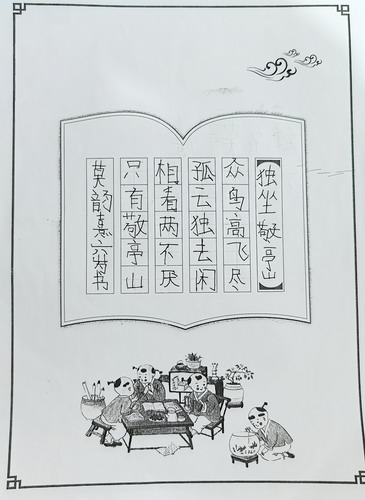 独坐敬亭山
众鸟高飞尽
孤云独去闲
相看两不厌
只有敬亭山
莫韵熹六岁书